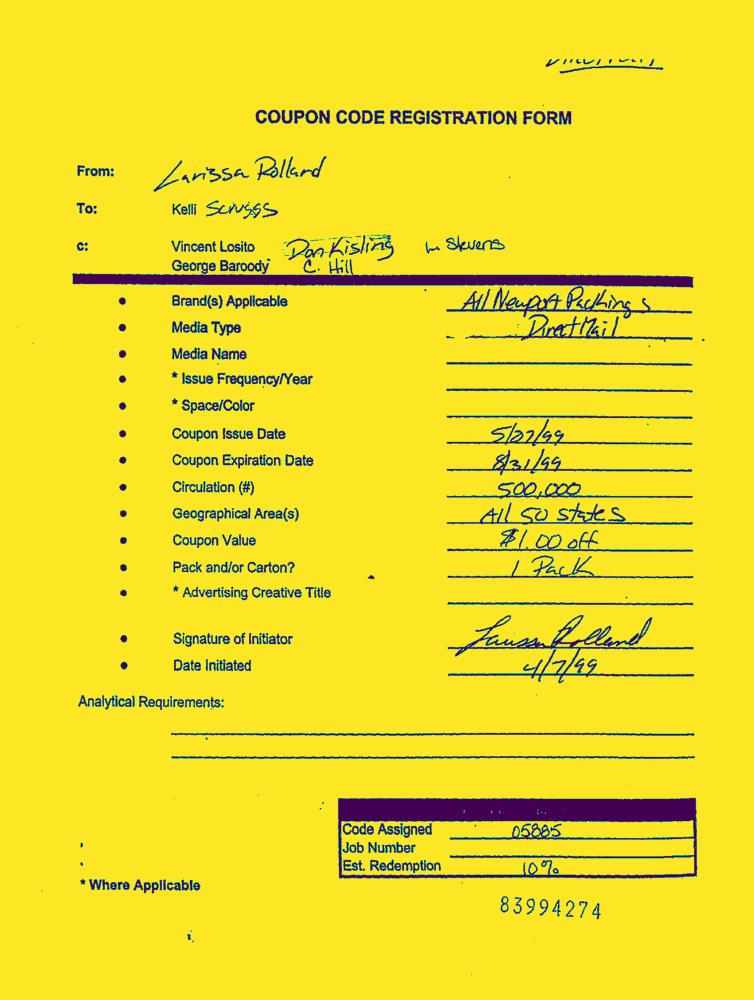 COUPON CODE REGISTRATION FORM
From: Larissa Rolland
To: Kelli Scruggs
c: Vincent Losito Don Kisling Stevens
George Baroody C. Hill
• Brand(s) Applicable All Newport Packings
• Media Type Direct Mail
• Media Name
• * Issue Frequency/Year
• * Space/Color
• Coupon Issue Date 5/27/99
• Coupon Expiration Date 8/31/99
• Circulation (#) 500,000
• Geographical Area(s) All 50 states
• Coupon Value $1.00 off
• Pack and/or Carton? 1 Pack
• * Advertising Creative Title
• Signature of Initiator Larissa Rolland
• Date Initiated 4/7/99
Analytical Requirements:
Code Assigned 05885
Job Number
Est. Redemption 10%
* Where Applicable
83994274